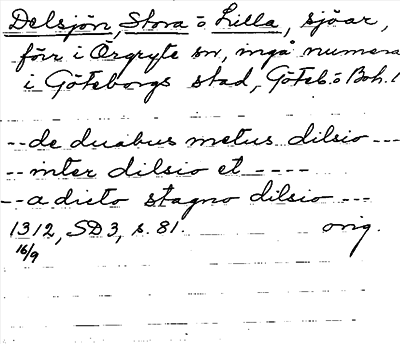 Delsjön, Stora o Lilla, sjöar,
förr i Örgryte sn, ingå numera
i Göteborgs stad, Göteb. o Boh. l
-- de duabus metus dilsio ---
-- inter dilsio et ----
-- a dicto stagno dilsio ---
1312, SD3, s. 81. orig.
16/9